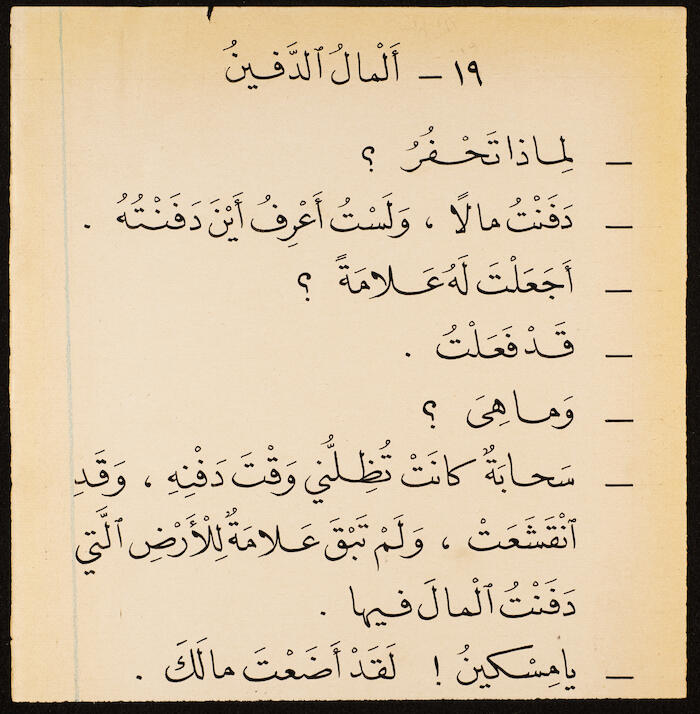 ١٩ ـ أَلْمالُ ٱلدَّفينُ
ـ لِماذا تَحْفُرُ ؟
ـ دَفَنْتُ مالًا ، وَلَسْتُ أَعْرِفُ أَيْنَ دَفَنْتُهُ .
ـ أَجَعَلْتَ لَهُ عَلامَةً ؟
ـ قَدْ فَعَلْتُ .
ـ وَما هِىَ ؟
ـ سَحابَةٌ كانَتْ تُظِلُّني وَقْتَ دَفْنِهِ ، وَقَدِ
ٱنْقَشَعَتْ ، وَلَمْ تَبْقَ عَلامَةٌ لِلْأَرْضِ ٱلَّتي
دَفَنْتُ ٱلْمالَ فيها .
ـ يا مِسْكينُ ! لَقَدْ أَضَعْتَ مالَكَ .